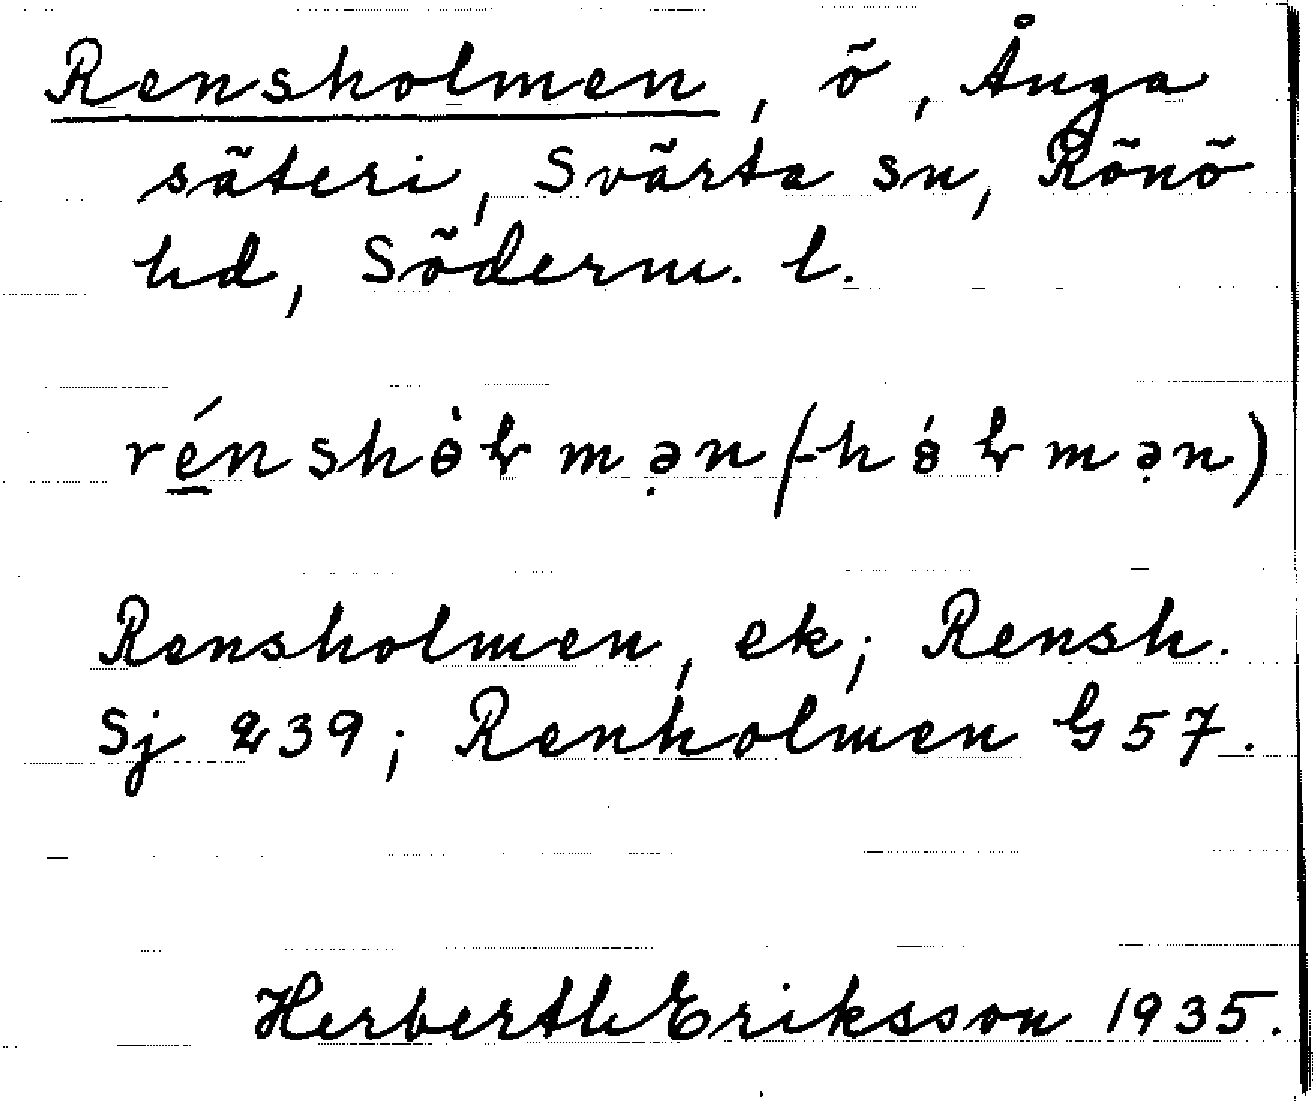 Rensholmen, ö, Ånga
säteri, Svärta sn, Rönö
hd, Söderm. l.
rénshòłmən (-hółmən)
Rensholmen, ek; Rensh.
Sj 239; Renholmen G57.
Herberth Eriksson 1935.